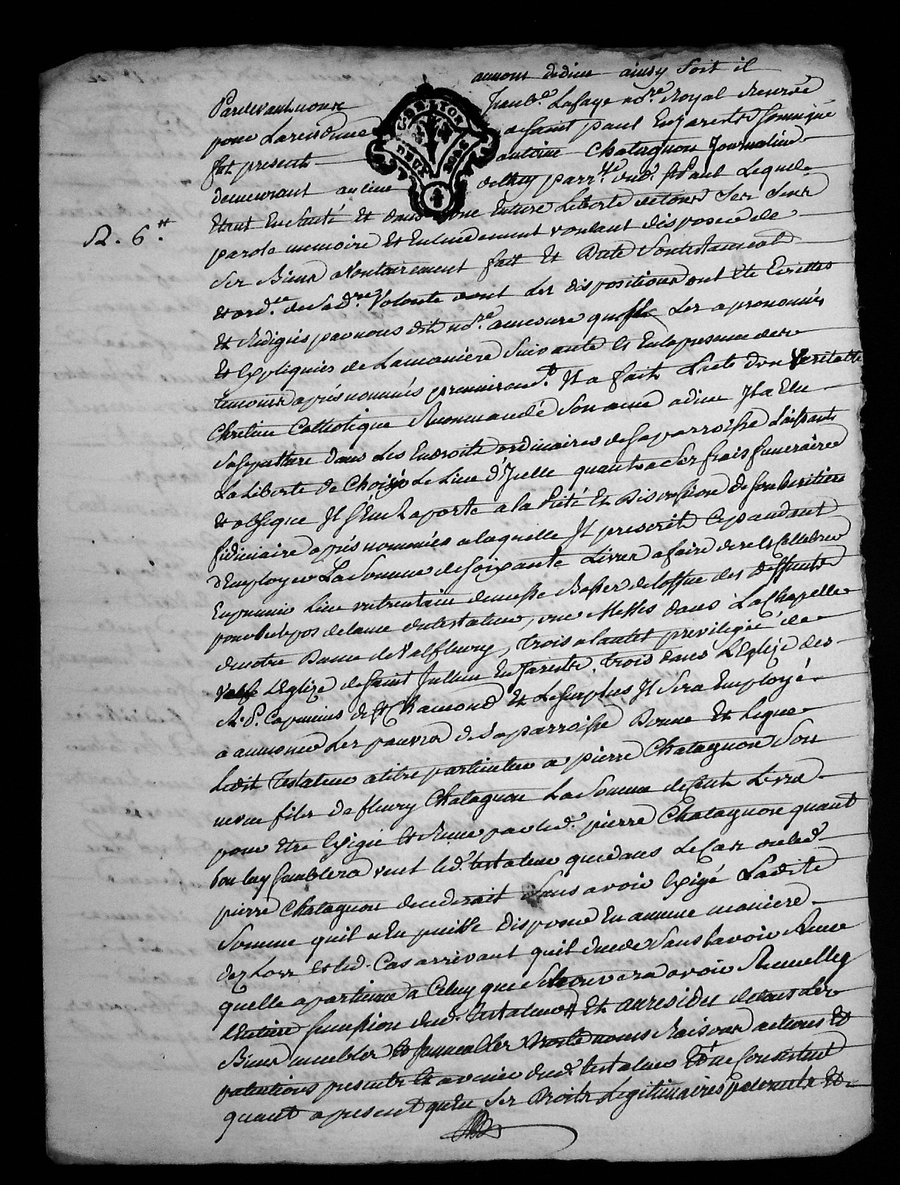 aunom dedieu ainsy soit il
Pardevant nous Jean Bte Lafaye nore Royal Reservé
pour Laresidence asaint paul Enjarests soussigné
fut present antoine Chatagnon Journalier
demeurant aulieu parrsse dud. st Paul Lequel
Etant En santé Et dans une Entiere Liberté detous ses sens
R. 6.tt
parole memoire Et Entendement voulant disposer de
ses Biens avolontairement fait Et Dicté sontestament
Et ordre de sa dre volonté dont Les dispositions ont été Ecrittes
et Redigés par nous dit nore amesure quil Les a prononcés
Et Expliquées de Lamaniere suivante Et En la presence des
temoins aprés nommés premierement Il a fait Lacte dun veritable
Chretien Catholique Recommandé son ame adieu Il a Elu
sasepulture dans Les Endroits ordinaires desaparroisse Laissant
La Liberté de Choisir Le Lieu d'Icelle quant a ses frais funeraires
et obseque Il s'En Raporte a la Piété Et Discretion de son heritiere
fiduciaire aprés nommée a laquelle Il prescrit cependant
d'Employer La somme de soixante Livres a faire dire Et Cellebrer
En premier Lieu trentaine de messe Basses de loffice des deffunts
pour le repos de lame du testateur, messes dans La Chapelle
denotre Dame de Valfleury, trois a lautel privilegié de
L'Eglize de saint Julien En Jarest, trois dans L'Eglize des
R. P. Capucins de st Chamond Et Lesurplus Il sera Employé
a aumoner Les pauvres de saparroisse Donne Et Legue
Ledit testateur a titre particulier a pierre Chatagnon son
neveu fils de fleury Chatagnon La somme de Livres
pour être Exigé Et Recue par led. pierre Chatagnon quant
bon luy semblera veut led. testateur que dans Le Cas ou led.
pierre Chatagnon decederait sans avoir Exigé Ladite
somme quil n'En puisse disposer En aucune maniere
dez Lors Et led. Cas arrivant quil decede sans lavoir Recue
quelle apartienne a Celuy que se trouvera avoir Recueilly
L'Entiere succession dud. testateur Et au residu de tous Les
Biens meubles Et immeubles noms Raisons actions Et
pretentions presents Et avenir dud. testateur Et ne Consistant
quant apresent qu'En ses Droits Legitimaires paternels Et